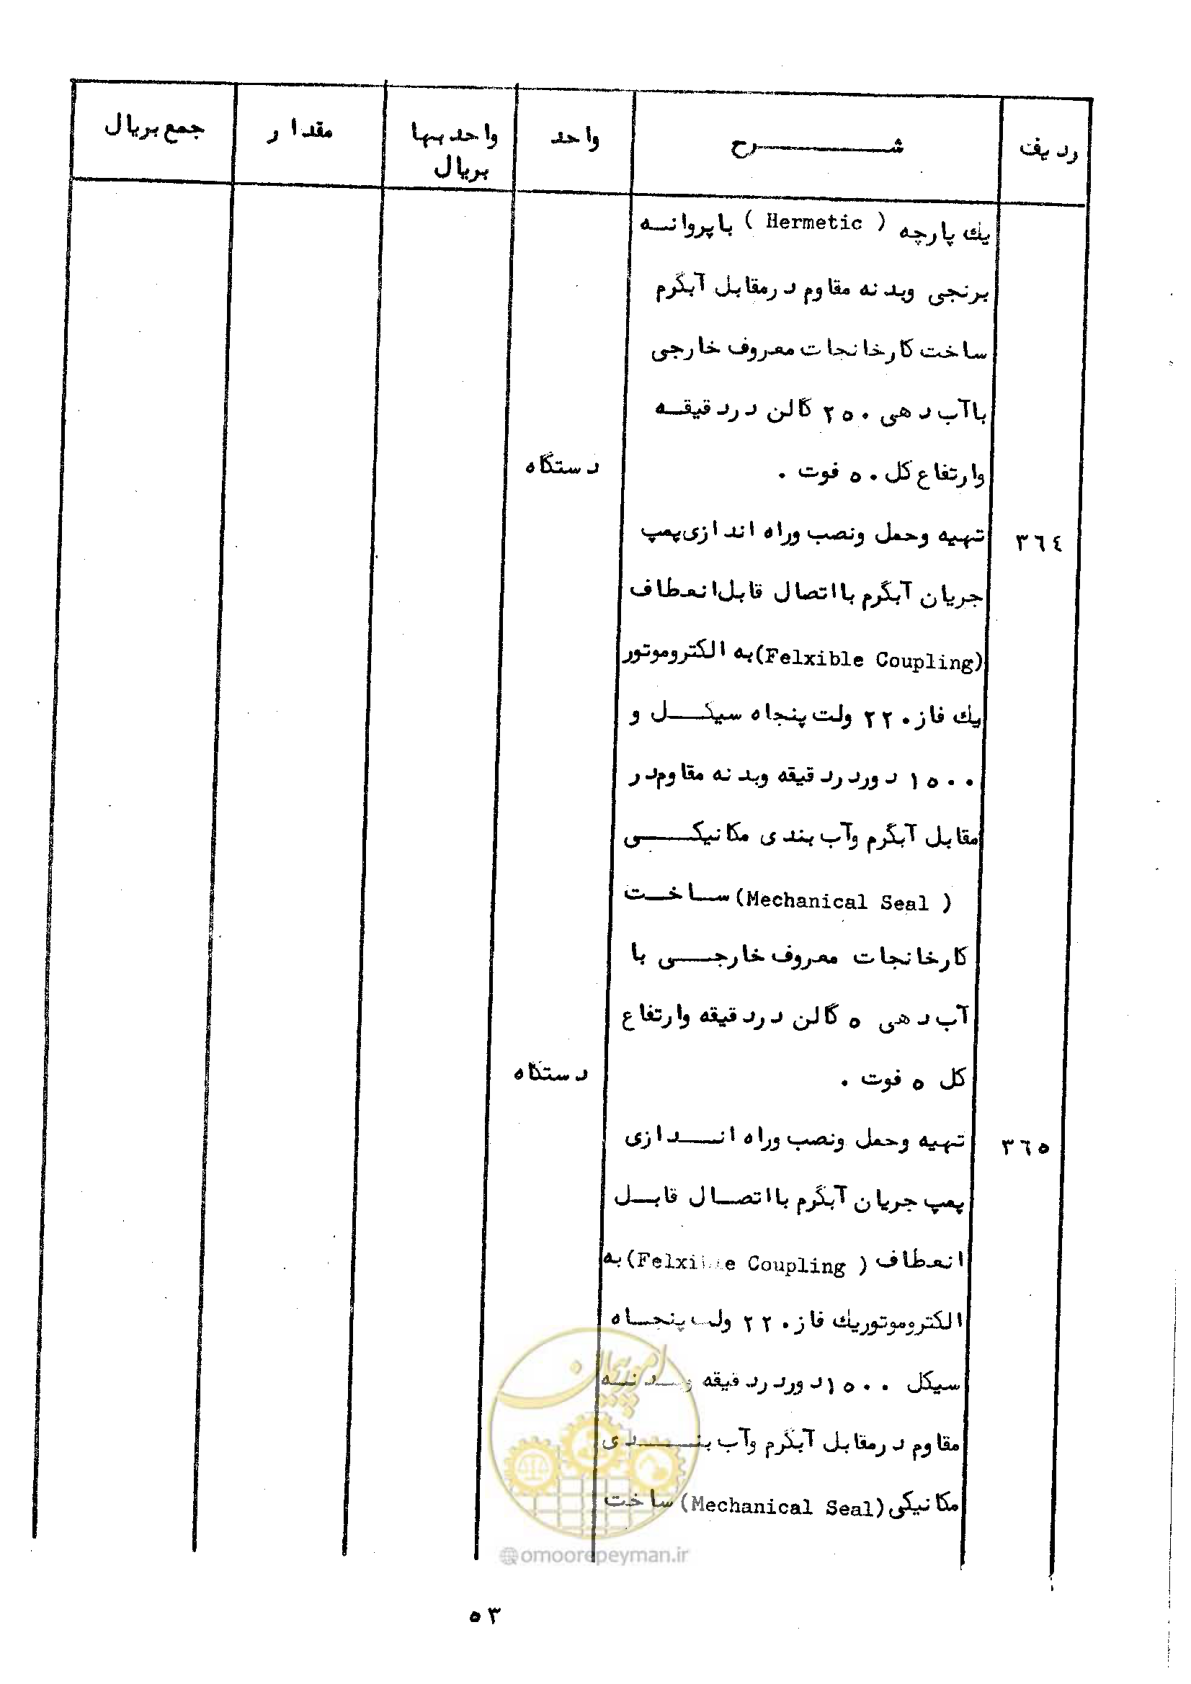 ردیف شــــــرح واحد واحدبها مقدار جمع بریال
بریال
یك پارچه ( Hermetic ) باپروانــه
برنجی وبدنه مقاوم درمقابل آبگرم
ساخت کارخانجات معروف خارجی
باآب دهی ۲۵۰ گالن دردقیقــه
وارتفاع کل ۵۰ فوت . دستگاه
۳٦٤ تهیه وحمل ونصب وراه اندازی پمپ
جریان آبگرم بااتصال قابل انعطاف
(Felxible Coupling) به الکتروموتور
یك فاز ۲۲۰ ولت پنجاه سیکــل و
۱۵۰۰ دوردردقیقه وبدنه مقاوم در
مقابل آبگرم وآب بندی مکانیکــی
(Mechanical Seal ) ســاخــت
کارخانجات معروف خارجــی با
آب دهی ۵ گالن دردقیقه وارتفاع
کل ۵ فوت . دستگاه
۳٦۵ تهیه وحمل ونصب وراه انــدازی
پمپ جریان آبگرم بااتصــال قابــل
انعطاف (Felxible Coupling ) به
الکتروموتوریك فاز ۲۲۰ ولت پنجــاه
سیکل ۱۵۰۰ دوردردقیقه وبــدنــه
مقاوم درمقابل آبگرم وآب بنــدی
مکانیکی (Mechanical Seal) ساخت
امور پیمان
@omoorepeyman.ir
۵۳